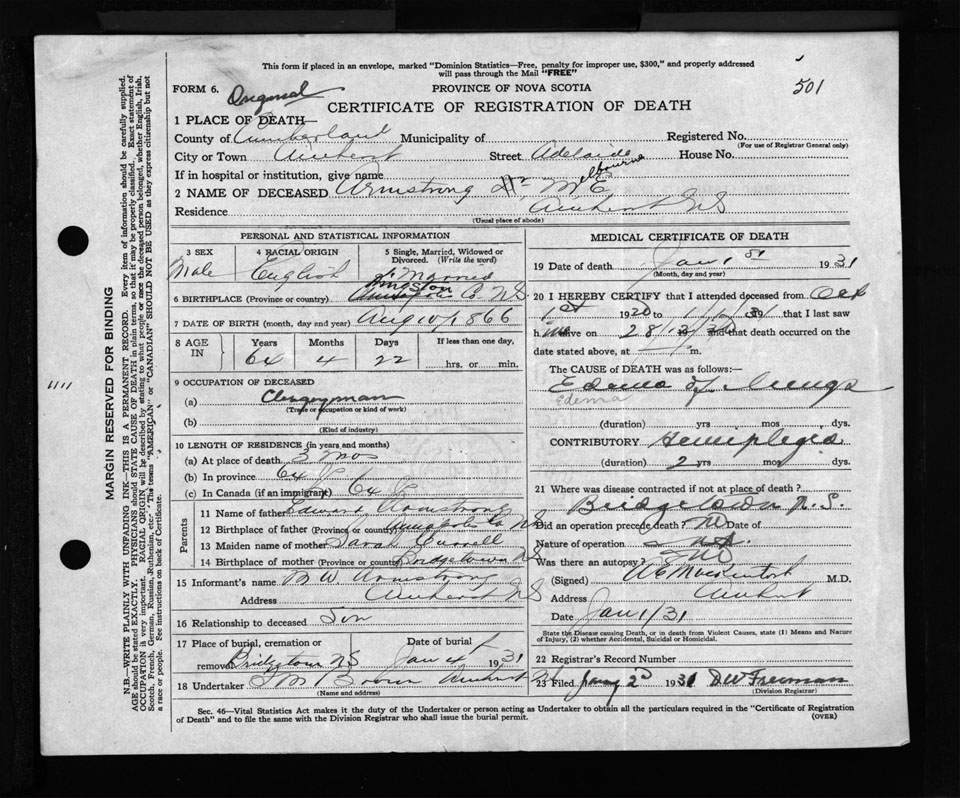 This form if placed in an envelope, marked "Dominion Statistics—Free, penalty for improper use, $300," and properly addressed
will pass through the Mail "FREE"
501
FORM 6. Original PROVINCE OF NOVA SCOTIA
CERTIFICATE OF REGISTRATION OF DEATH
1 PLACE OF DEATH—
County of Cumberland Municipality of Registered No.
(For use of Registrar General only)
City or Town Amherst Street Adelaide House No.
If in hospital or institution, give name
Melbourne
2 NAME OF DECEASED Armstrong M E
Residence Amherst NS
(Usual place of abode)
PERSONAL AND STATISTICAL INFORMATION
3 SEX 4 RACIAL ORIGIN 5 Single, Married, Widowed or Divorced. (Write the word)
Male English Married
Kingston
6 BIRTHPLACE (Province or country) Annapolis Co. N.S.
7 DATE OF BIRTH (month, day and year) Aug 10/1866
8 AGE IN Years Months Days If less than one day,
64 4 22 hrs. or min.
9 OCCUPATION OF DECEASED
(a) Clergyman
(Trade or occupation or kind of work)
(b)
(Kind of industry)
10 LENGTH OF RESIDENCE (in years and months)
(a) At place of death 3 mos
(b) In province 64
(c) In Canada (if an immigrant) 64
Parents
11 Name of father Edward Armstrong
12 Birthplace of father (Province or country) NS
13 Maiden name of mother Sarah
14 Birthplace of mother (Province or country) Bridgetown NS
15 Informant's name Armstrong
Address Amherst NS
16 Relationship to deceased Son
17 Place of burial, cremation or removal Bridgetown NS Date of burial Jan 4 1931
18 Undertaker Brown Amherst N
(Name and address)
MEDICAL CERTIFICATE OF DEATH
19 Date of death Jan 1st 1931
(Month, day and year)
20 I HEREBY CERTIFY that I attended deceased from Oct
1st 1930 to 1/1/31 that I last saw
him alive on 28/12/30 and that death occurred on the
date stated above, at m.
The CAUSE OF DEATH was as follows:—
Edema of Lungs
Edema
(duration) yrs. mos. dys.
CONTRIBUTORY Hemiplegia
(duration) 2 yrs. mos. dys.
21 Where was disease contracted if not at place of death?
Bridgetown N.S.
Did an operation precede death? No Date of
Nature of operation
Was there an autopsy? No
(Signed) M.D.
Address Amherst
Date Jan 1/31
State the Disease causing Death, or in death from Violent Causes, state (1) Means and Nature
of Injury, (2) whether Accidental, Suicidal or Homicidal.
22 Registrar's Record Number
23 Filed 2 1931 DW Freeman
(Division Registrar)
Sec. 46—Vital Statistics Act makes it the duty of the Undertaker or person acting as Undertaker to obtain all the particulars required in the "Certificate of Registration
of Death" and to file the same with the Division Registrar who shall issue the burial permit.
(OVER)
MARGIN RESERVED FOR BINDING
N.B.—WRITE PLAINLY WITH UNFADING INK—THIS IS A PERMANENT RECORD. Every item of information should be carefully supplied.
AGE should be stated EXACTLY. PHYSICIANS should STATE CAUSE OF DEATH in plain terms, so that it may be properly classified. Exact statement of
OCCUPATION is very important. RACIAL ORIGIN will be described by stating to what people or race the deceased person belonged, whether English, Irish,
Scotch, French, German, Russian, Ruthenian, etc. The terms "AMERICAN" or "CANADIAN" SHOULD NOT BE USED as they express citizenship but not
a race or people. See instructions on back of Certificate.